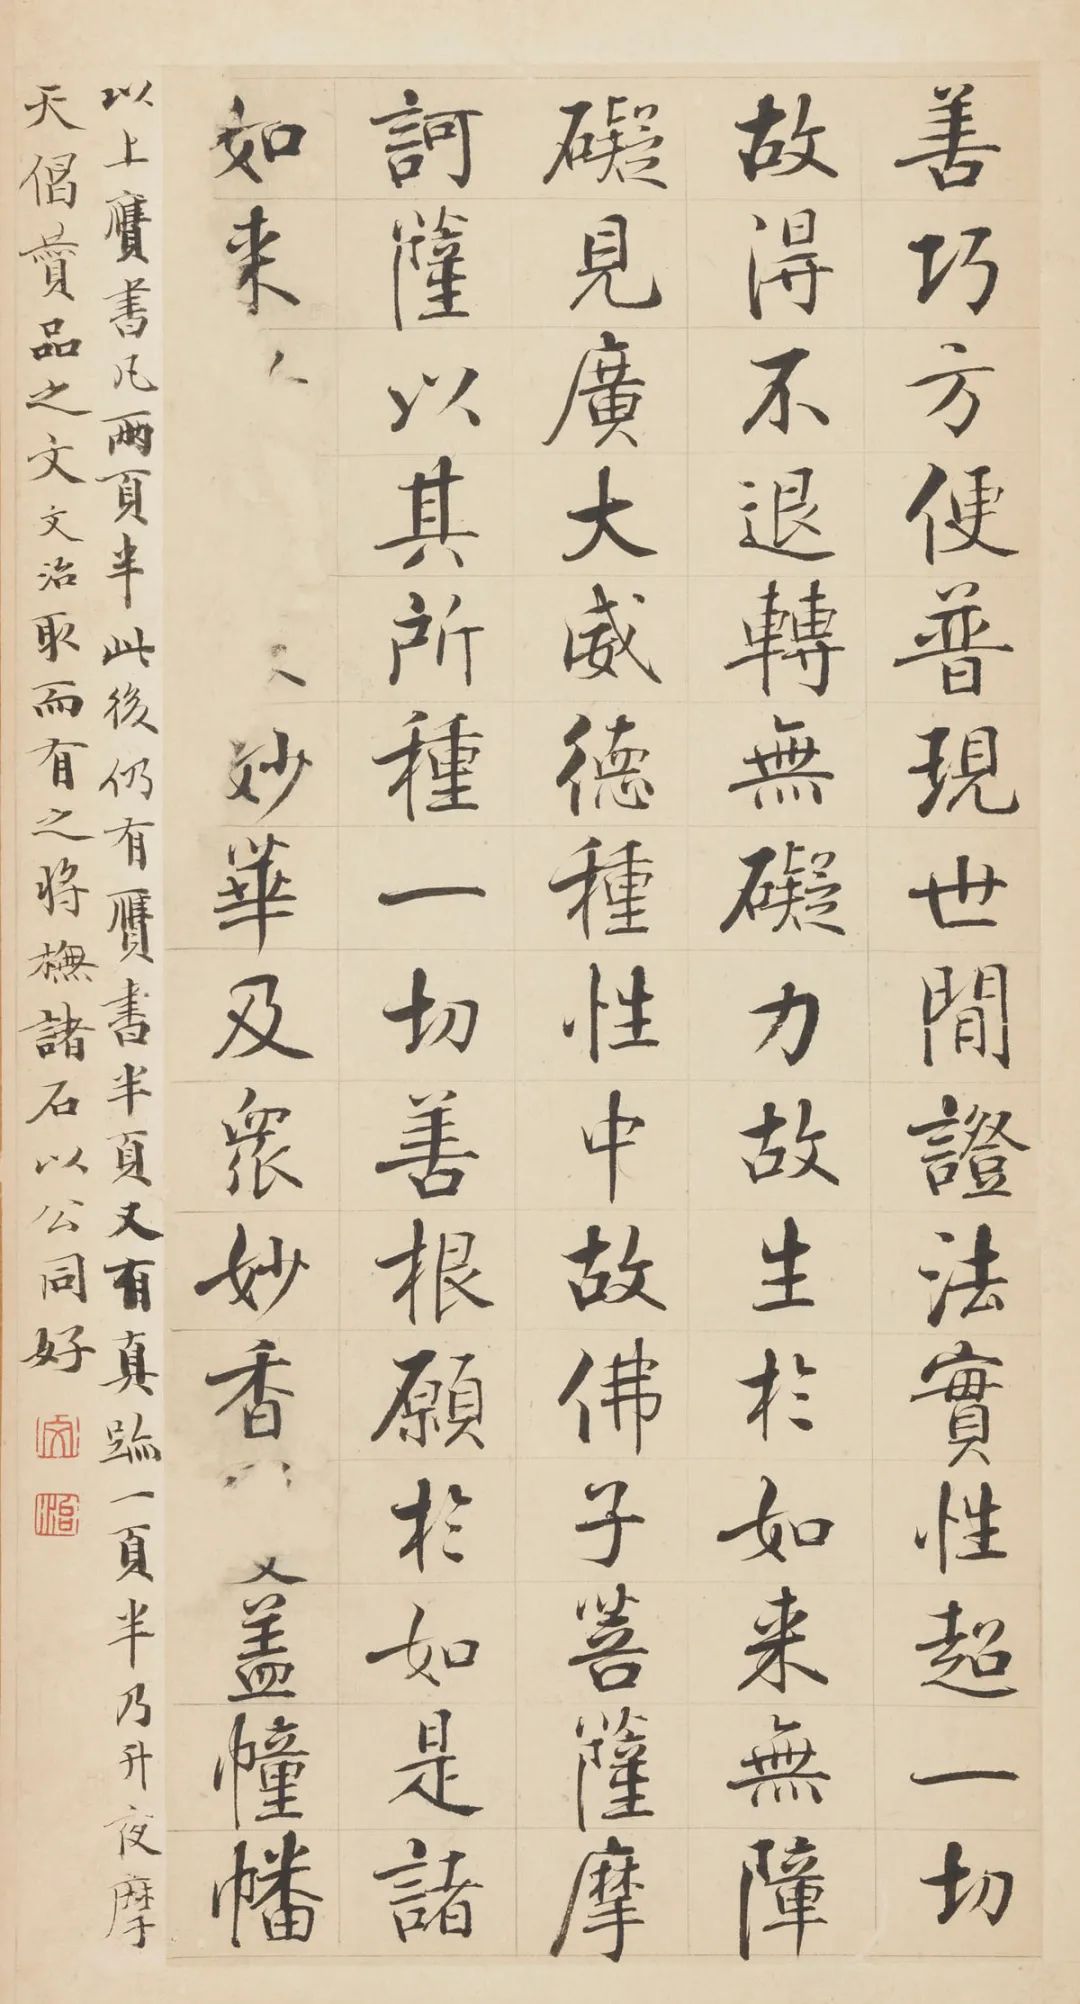 善巧方便普現世間證法實性超一切
故得不退轉無礙力故生於如来無障
礙見廣大威德種性中故佛子菩薩摩
訶薩以其所種一切善根願於如是諸
如来妙華及眾妙香盖幢幡
以上贗書凡兩頁半此後仍有贗書半頁又有真蹟一頁半乃升夜摩
天偈賛品之文文治取而有之将橅諸石以公同好
文
治